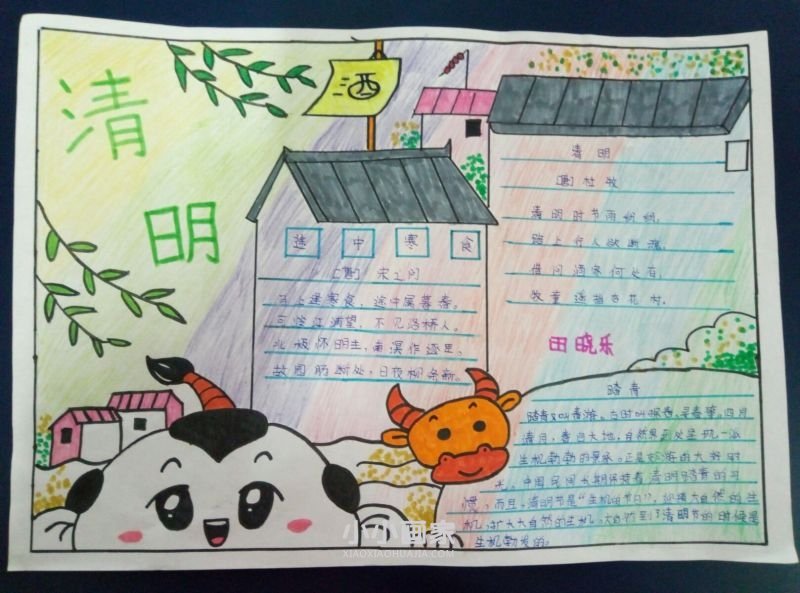 清
明
酒
途中寒食
(唐) 宋之问
马上逢寒食,途中属暮春。
可怜江浦望,不见洛桥人。
北极怀明主,南溟作逐臣。
故园肠断处,日夜柳条新。
清明
[唐]杜牧
清明时节雨纷纷,
路上行人欲断魂。
借问酒家何处有,
牧童遥指杏花村。
田晓乐
踏青
踏青又叫春游。古时叫探春、寻春等。四月
清明,春回大地,自然界到处呈现一派
生机勃勃的景象。正是郊游的大好时
光。中国民间长期保持着清明踏青的习
惯,而且,清明节是“生机的节日”,迎接大自然的生
机,扩大大自然的生机,大自然到了清明节的时候是
生机勃发的。
小小画家
XIAOXIAOHUAJIA.COM